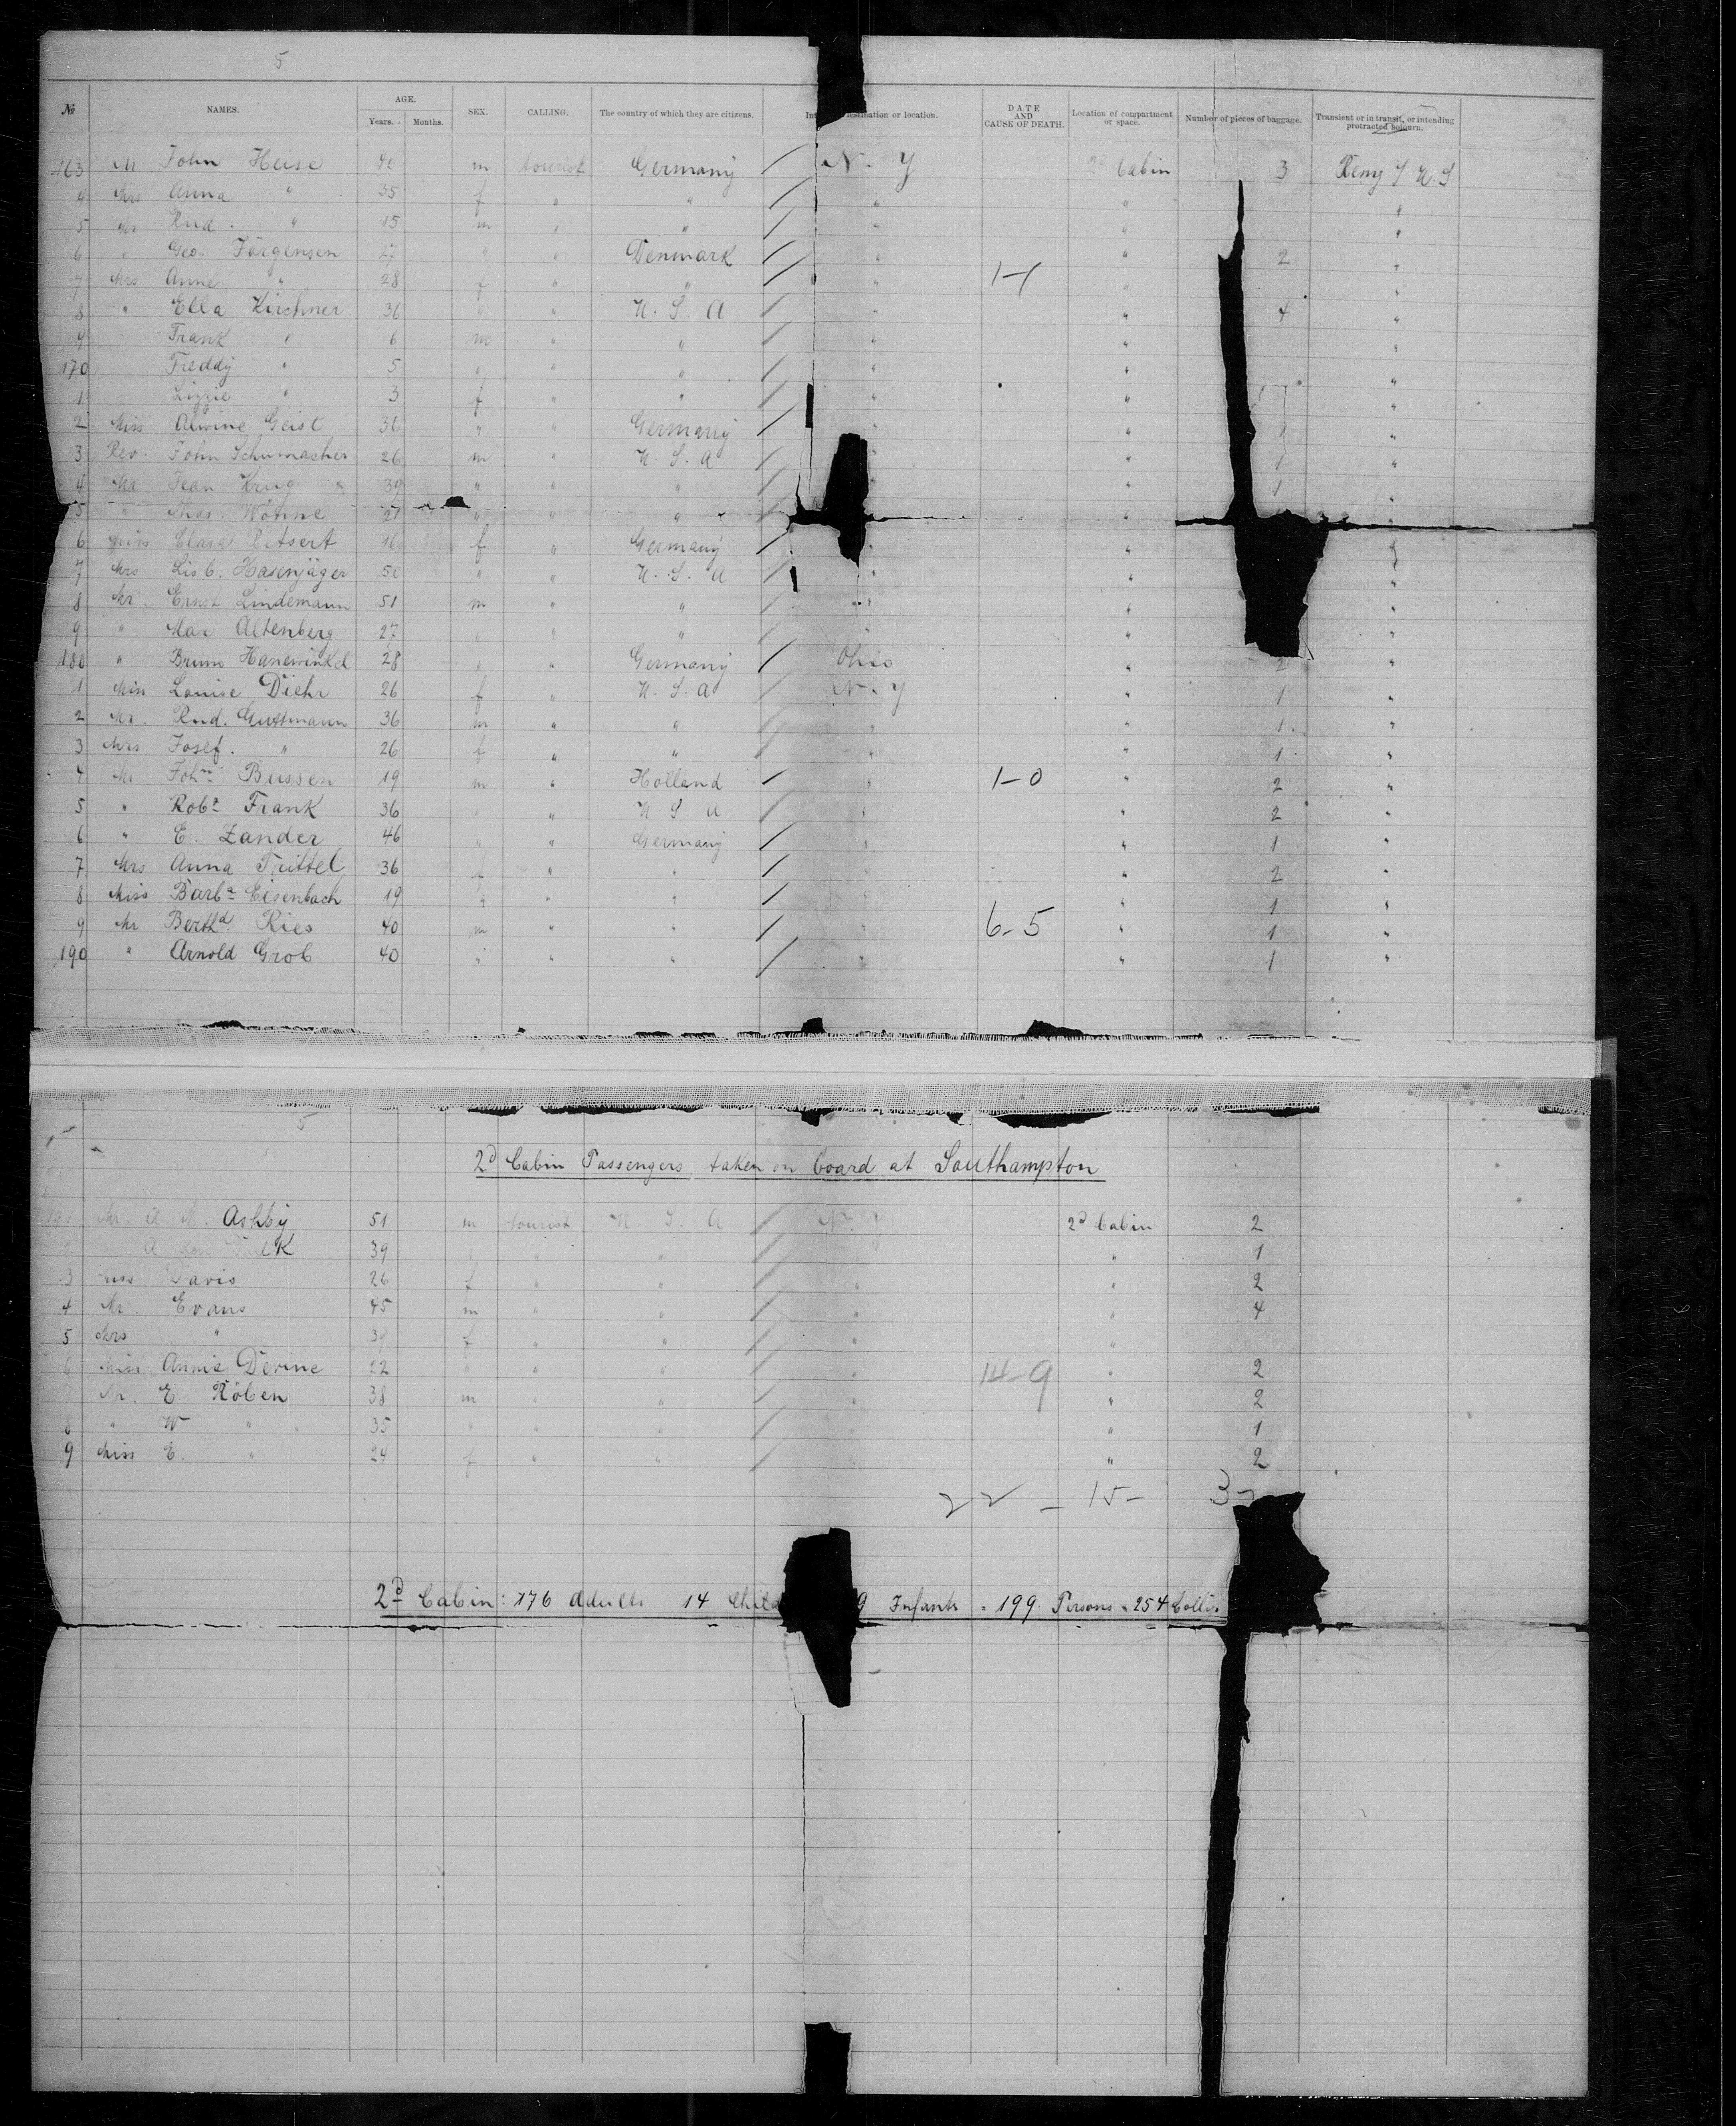 5
№ NAMES. AGE. Years. Months. SEX. CALLING. The country of which they are citizens. destination or location. DATE AND CAUSE OF DEATH. Location of compartment or space. Number of pieces of baggage. Transient or in transit, or intending protracted sojourn.
163 Mr John Heise 40 m tourist Germany / N. Y 2d Cabin 3 U. S
4 Mrs Anna " 35 f " " / " " "
5 Mr Rud. " 15 m " " / " " "
6 " Geo. Jörgensen 27 " " Denmark / " " 2 "
7 Mrs Anne " 28 f " " / " 1-1 " "
8 " Ella Kirchner 36 " " U. S. A / " " 4 "
9 Frank " 6 m " " / " " "
170 Freddy " 5 " " " / " " "
1 Lizzie " 3 f " " / " " "
2 Miss Alwine Geist 31 " " Germany / " " 1 "
3 Rev. John Schumacher 26 m " U. S. A / " " 1 "
4 Mr Jean Krug 39 " " " / " " 1 "
5 " Chas. Wöhne 21 " " " / " "
6 Miss Clara Retsert f " Germany / " " "
7 Mrs Lisb. Hasenjäger 50 " " U. S. A / " "
8 Mr. Ernst Lindemann 51 m " " / " " "
9 " Max Altenberg 27 " " " / " "
180 " Bruno Hanewinkel 28 " " Germany / Ohio " 2 "
1 Miss Louise Diehr 26 f " U. S. A / N. Y " 1 "
2 Mr. Rud. Guttmann 36 m " " / " " 1 "
3 Mrs Josef. " 26 f " " / " " 1 "
4 Mr Johnn Bussen 19 m " Holland / " 1-0 " 2 "
5 " Robt Frank 36 " " U S A " " 2 "
6 " E. Zander 46 " " Germany / " 1 "
7 Mrs Anna Tuttel 36 f " " / " 2 "
8 Miss Barba Eisenbach 19 " " " / " " 1 "
9 Mr Berthd Ries 40 m " " / " 6-5 " 1 "
190 " Arnold Grob 40 " " " / " " 1 "
2d Cabin Passengers taken on board at Southampton
191 Mr. A. Ashby 51 m tourist U. S. A / N. Y 2d Cabin 2
39 " " " / " " 1
3 Miss Davis 26 f " " / " " 2
4 Mr. Evans 45 m " " / " " 4
5 Mrs " f " " / " "
6 Miss Annie Devine 22 " " " / " 14-9 " 2
Mr. E Röben 38 m " " / " " 2
8 " W " 35 " " " / " " 1
9 Miss E. " 24 f " " / " 2
22 - 15-
2d Cabin: 176 Adults 14 Child 9 Infants = 199 Persons = 254 Collis